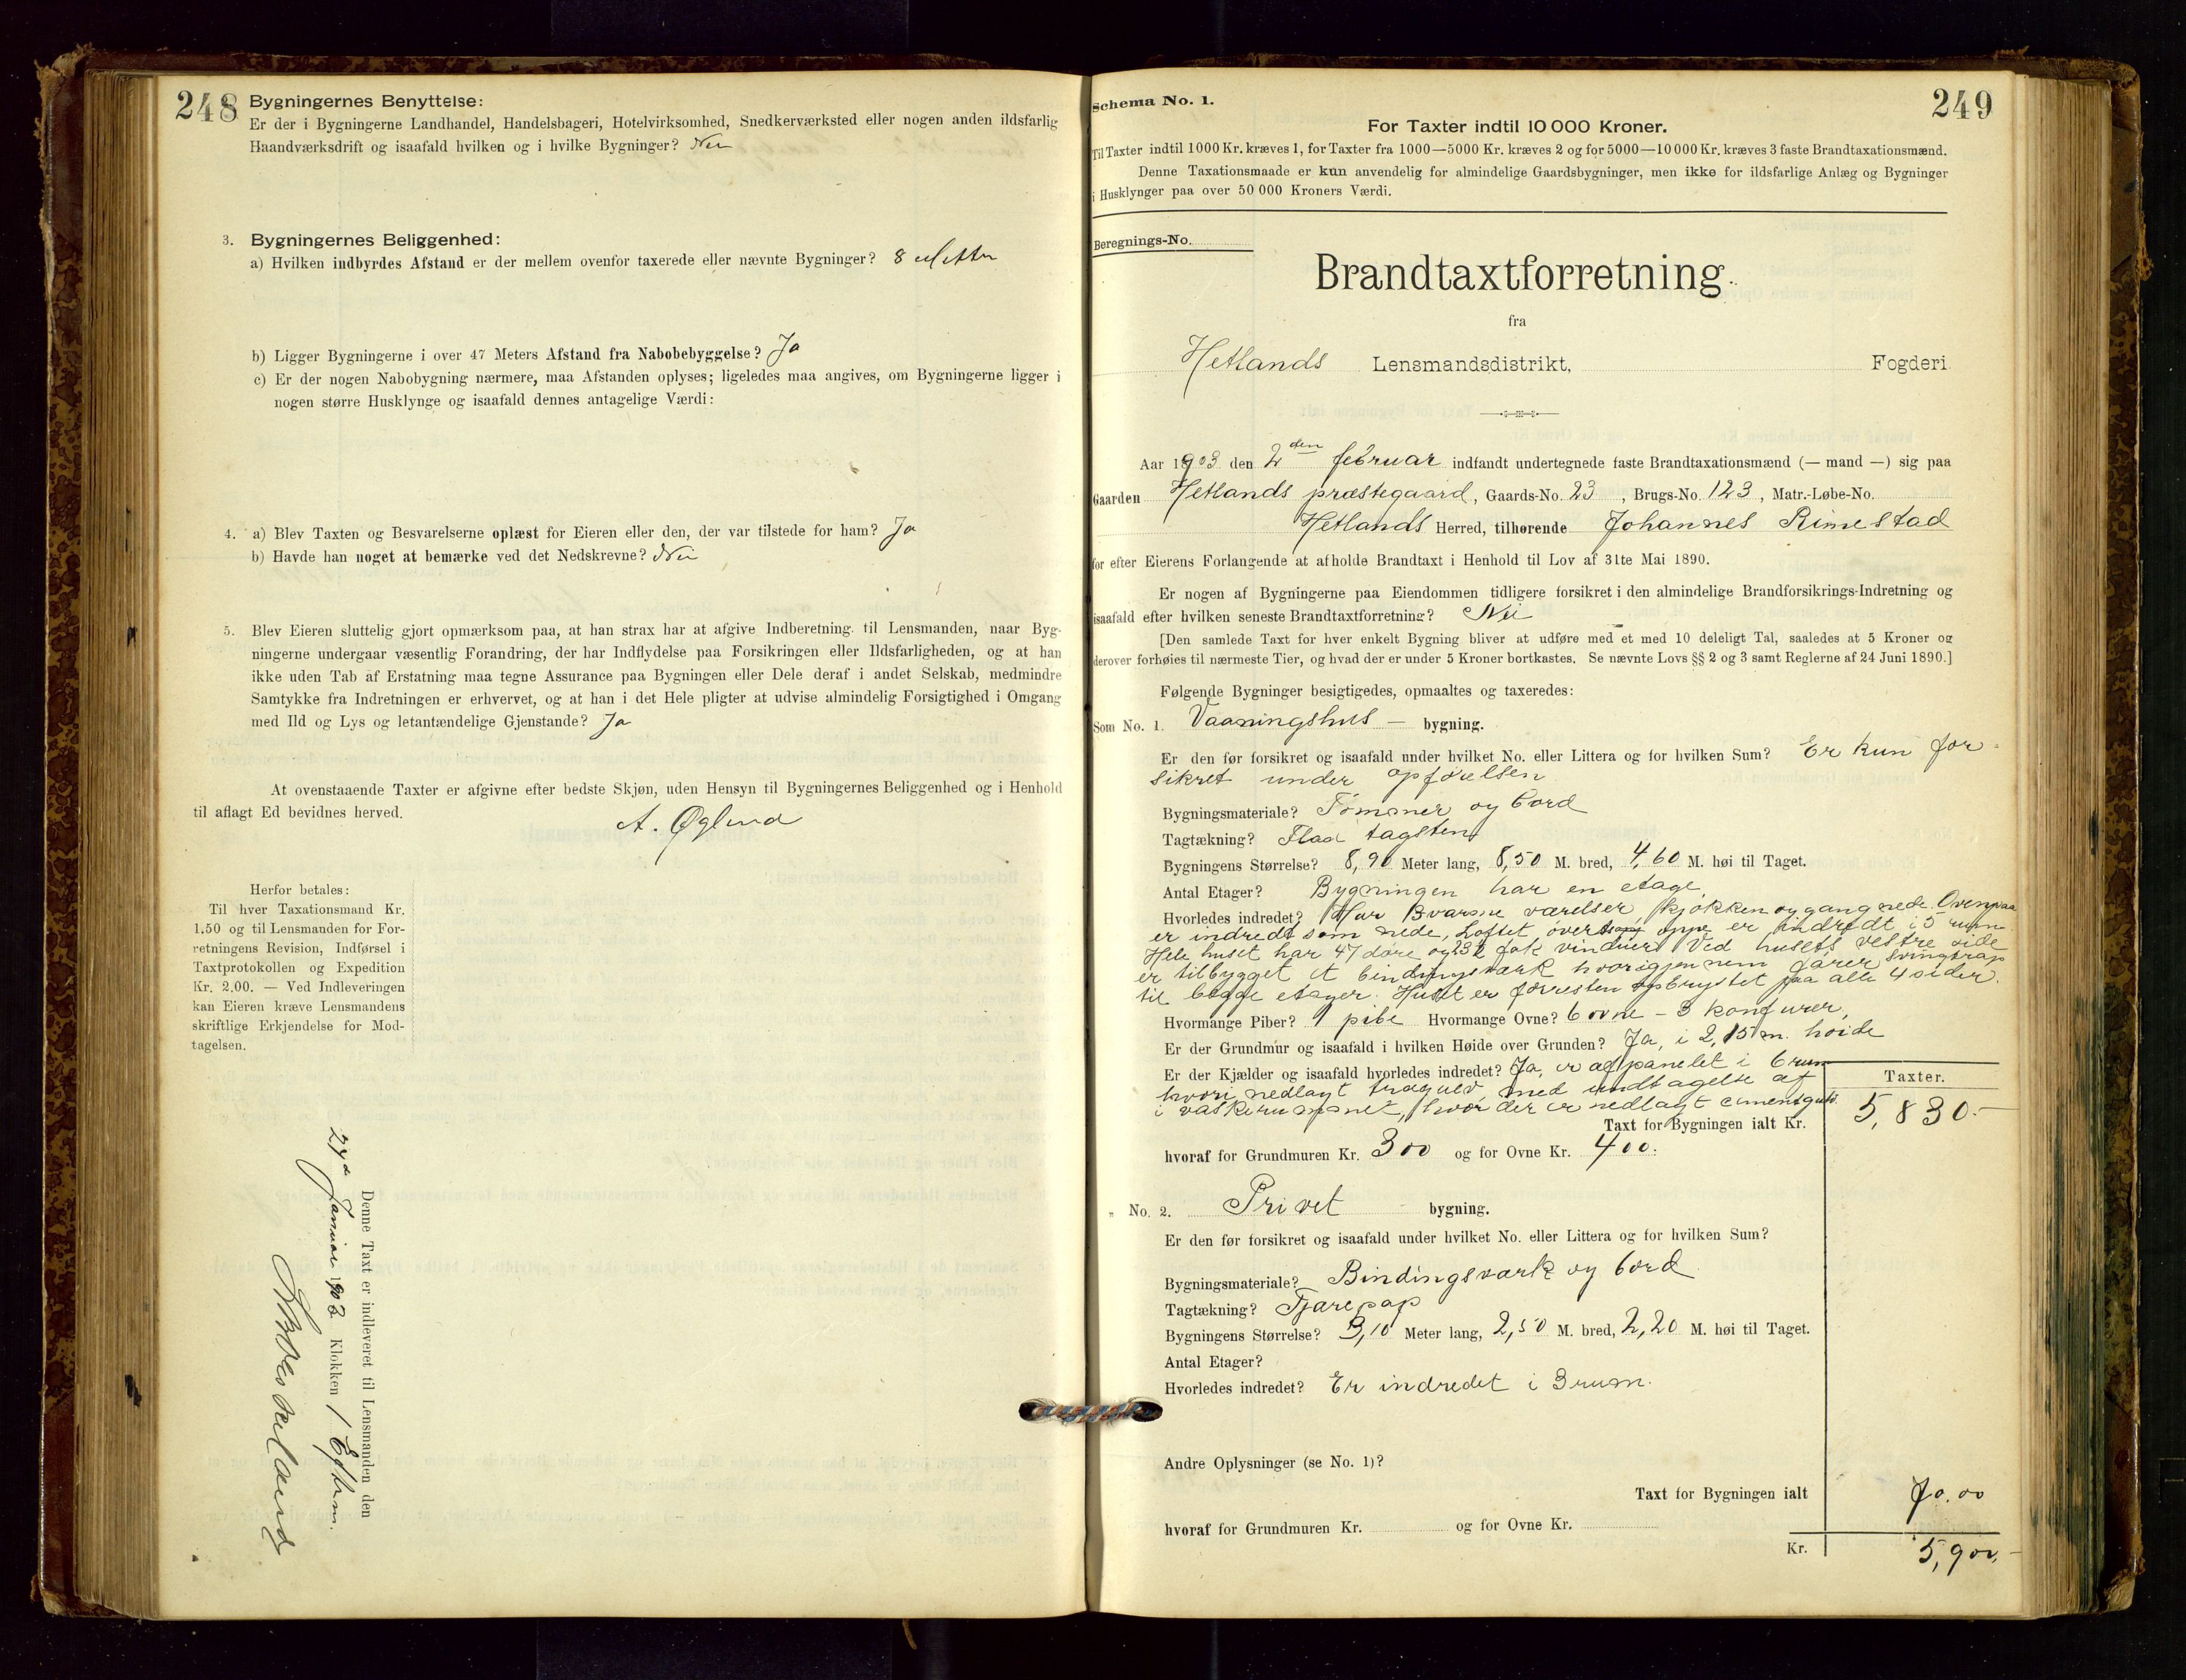 248
Bygningernes Benyttelse:
Er der i Bygningerne Landhandel, Handelsbageri, Hotelvirksomhed, Snedkerværksted eller nogen anden ildsfarlig
Haandværksdrift og isaafald hvilken og i hvilke Bygninger? Nei
3. Bygningernes Beliggenhed:
a) Hvilken indbyrdes Afstand er der mellem ovenfor taxerede eller nævnte Bygninger? 8 Metter
b) Ligger Bygningerne i over 47 Meters Afstand fra Nabobebyggelse? Ja
c) Er der nogen Nabobygning nærmere, maa Afstanden oplyses; ligeledes maa angives, om Bygningerne ligger i
nogen større Husklynge og isaafald dennes antagelige Værdi:
4. a) Blev Taxten og Besvarelserne oplæst for Eieren eller den, der var tilstede for ham? Ja
b) Havde han noget at bemærke ved det Nedskrevne? Nei
5. Blev Eieren sluttelig gjort opmærksom paa, at han strax har at afgive Indberetning til Lensmanden, naar Byg-
ningerne undergaar væsentlig Forandring, der har Indflydelse paa Forsikringen eller Ildsfarligheden, og at han
ikke uden Tab af Erstatning maa tegne Assurance paa Bygningen eller Dele deraf i andet Selskab, medmindre
Samtykke fra Indretningen er erhvervet, og at han i det Hele pligter at udvise almindelig Forsigtighed i Omgang
med Ild og Lys og letantændelige Gjenstande? Ja
At ovenstaaende Taxter er afgivne efter bedste Skjøn, uden Hensyn til Bygningernes Beliggenhed og i Henhold
til aflagt Ed bevidnes herved.
A. Øglend
Herfor betales:
Til hver Taxationsmand Kr.
1.50 og til Lensmanden for For-
retningens Revision, Indførsel i
Taxtprotokollen og Expedition
Kr. 2.00. — Ved Indleveringen
kan Eieren kræve Lensmandens
skriftlige Erkjendelse for Mod-
tagelsen.
Denne Taxt er indleveret til Lensmanden den
Januar 1903 Klokken 1 Efterm.
249
Schema No. 1.
For Taxter indtil 10 000 Kroner.
Til Taxter indtil 1000 Kr. kræves 1, for Taxter fra 1000—5000 Kr. kræves 2 og for 5000—10 000 Kr. kræves 3 faste Brandtaxationsmænd.
Denne Taxationsmaade er kun anvendelig for almindelige Gaardsbygninger, men ikke for ildsfarlige Anlæg og Bygninger
i Husklynger paa over 50 000 Kroners Værdi.
Beregnings-No.
Brandtaxtforretning
fra
Hetlands Lensmandsdistrikt, Fogderi
Aar 1903 den 2den februar indfandt undertegnede faste Brandtaxationsmænd (— mand —) sig paa
Gaarden Hetlands præstegaard, Gaards-No. 23, Brugs-No. 123, Matr.-Løbe-No.
Hetlands Herred, tilhørende Johannes Rimestad
for efter Eierens Forlangende at afholde Brandtaxt i Henhold til Lov af 31te Mai 1890.
Er nogen af Bygningerne paa Eiendommen tidligere forsikret i den almindelige Brandforsikrings-Indretning og
isaafald efter hvilken seneste Brandtaxtforretning? Nei
[Den samlede Taxt for hver enkelt Bygning bliver at udføre med et med 10 deleligt Tal, saaledes at 5 Kroner og
derover forhøies til nærmeste Tier, og hvad der er under 5 Kroner bortkastes. Se nævnte Lovs §§ 2 og 3 samt Reglerne af 24 Juni 1890.]
Følgende Bygninger besigtigedes, opmaaltes og taxeredes:
Som No. 1. Vaaningshus — bygning.
Er den før forsikret og isaafald under hvilket No. eller Littera og for hvilken Sum? Er kun for-
sikret under opførelsen
Bygningsmateriale? Tømmer og bord
Tagtækning? Flad tagsten
Bygningens Størrelse? 8,90 Meter lang, 8,50 M. bred, 4,60 M. høi til Taget.
Antal Etager? Bygningen har en etage
Hvorledes indredet? Har 3 varme værelser, kjøkken og gang nede. Ovenpaa
er indredt som nede, Loftet over oppe er indredt i 5 rum
Hele huset har døre og fak vinduer. Ved husets vestre side
er tilbygget et bindingsværk hvorigjennem fører Svingtrap
til begge etager. Huset er forresten opbrystet paa alle 4 sider.
Hvormange Piber? 1 pibe Hvormange Ovne? 6 ovne - 3 komfurer,
Er der Grundmur og isaafald i hvilken Høide over Grunden? Ja, i 2,15 m. høide
Er der Kjælder og isaafald hvorledes indredet? Ja, er afpanelet i 6 rum
hvori nedlagt trægulv, med undtagelse af
i vaskerummet, hvor der er nedlagt cementgulv.
Taxter.
Taxt for Bygningen ialt Kr. 5,830.-
hvoraf for Grundmuren Kr. 300 og for Ovne Kr. 400.
" No. 2. Privet bygning.
Er den før forsikret og isaafald under hvilket No. eller Littera og for hvilken Sum?
Bygningsmateriale? Bindingsværk og bord
Tagtækning? Tjærepap
Bygningens Størrelse? 3,10 Meter lang, 2,50 M. bred, 2,20 M. høi til Taget.
Antal Etager?
Hvorledes indredet? Er indredet i 3 rum.
Andre Oplysninger (se No. 1)?
Taxt for Bygningen ialt 70.00
hvoraf for Grundmuren Kr. og for Ovne Kr.
Kr. 5,900,-